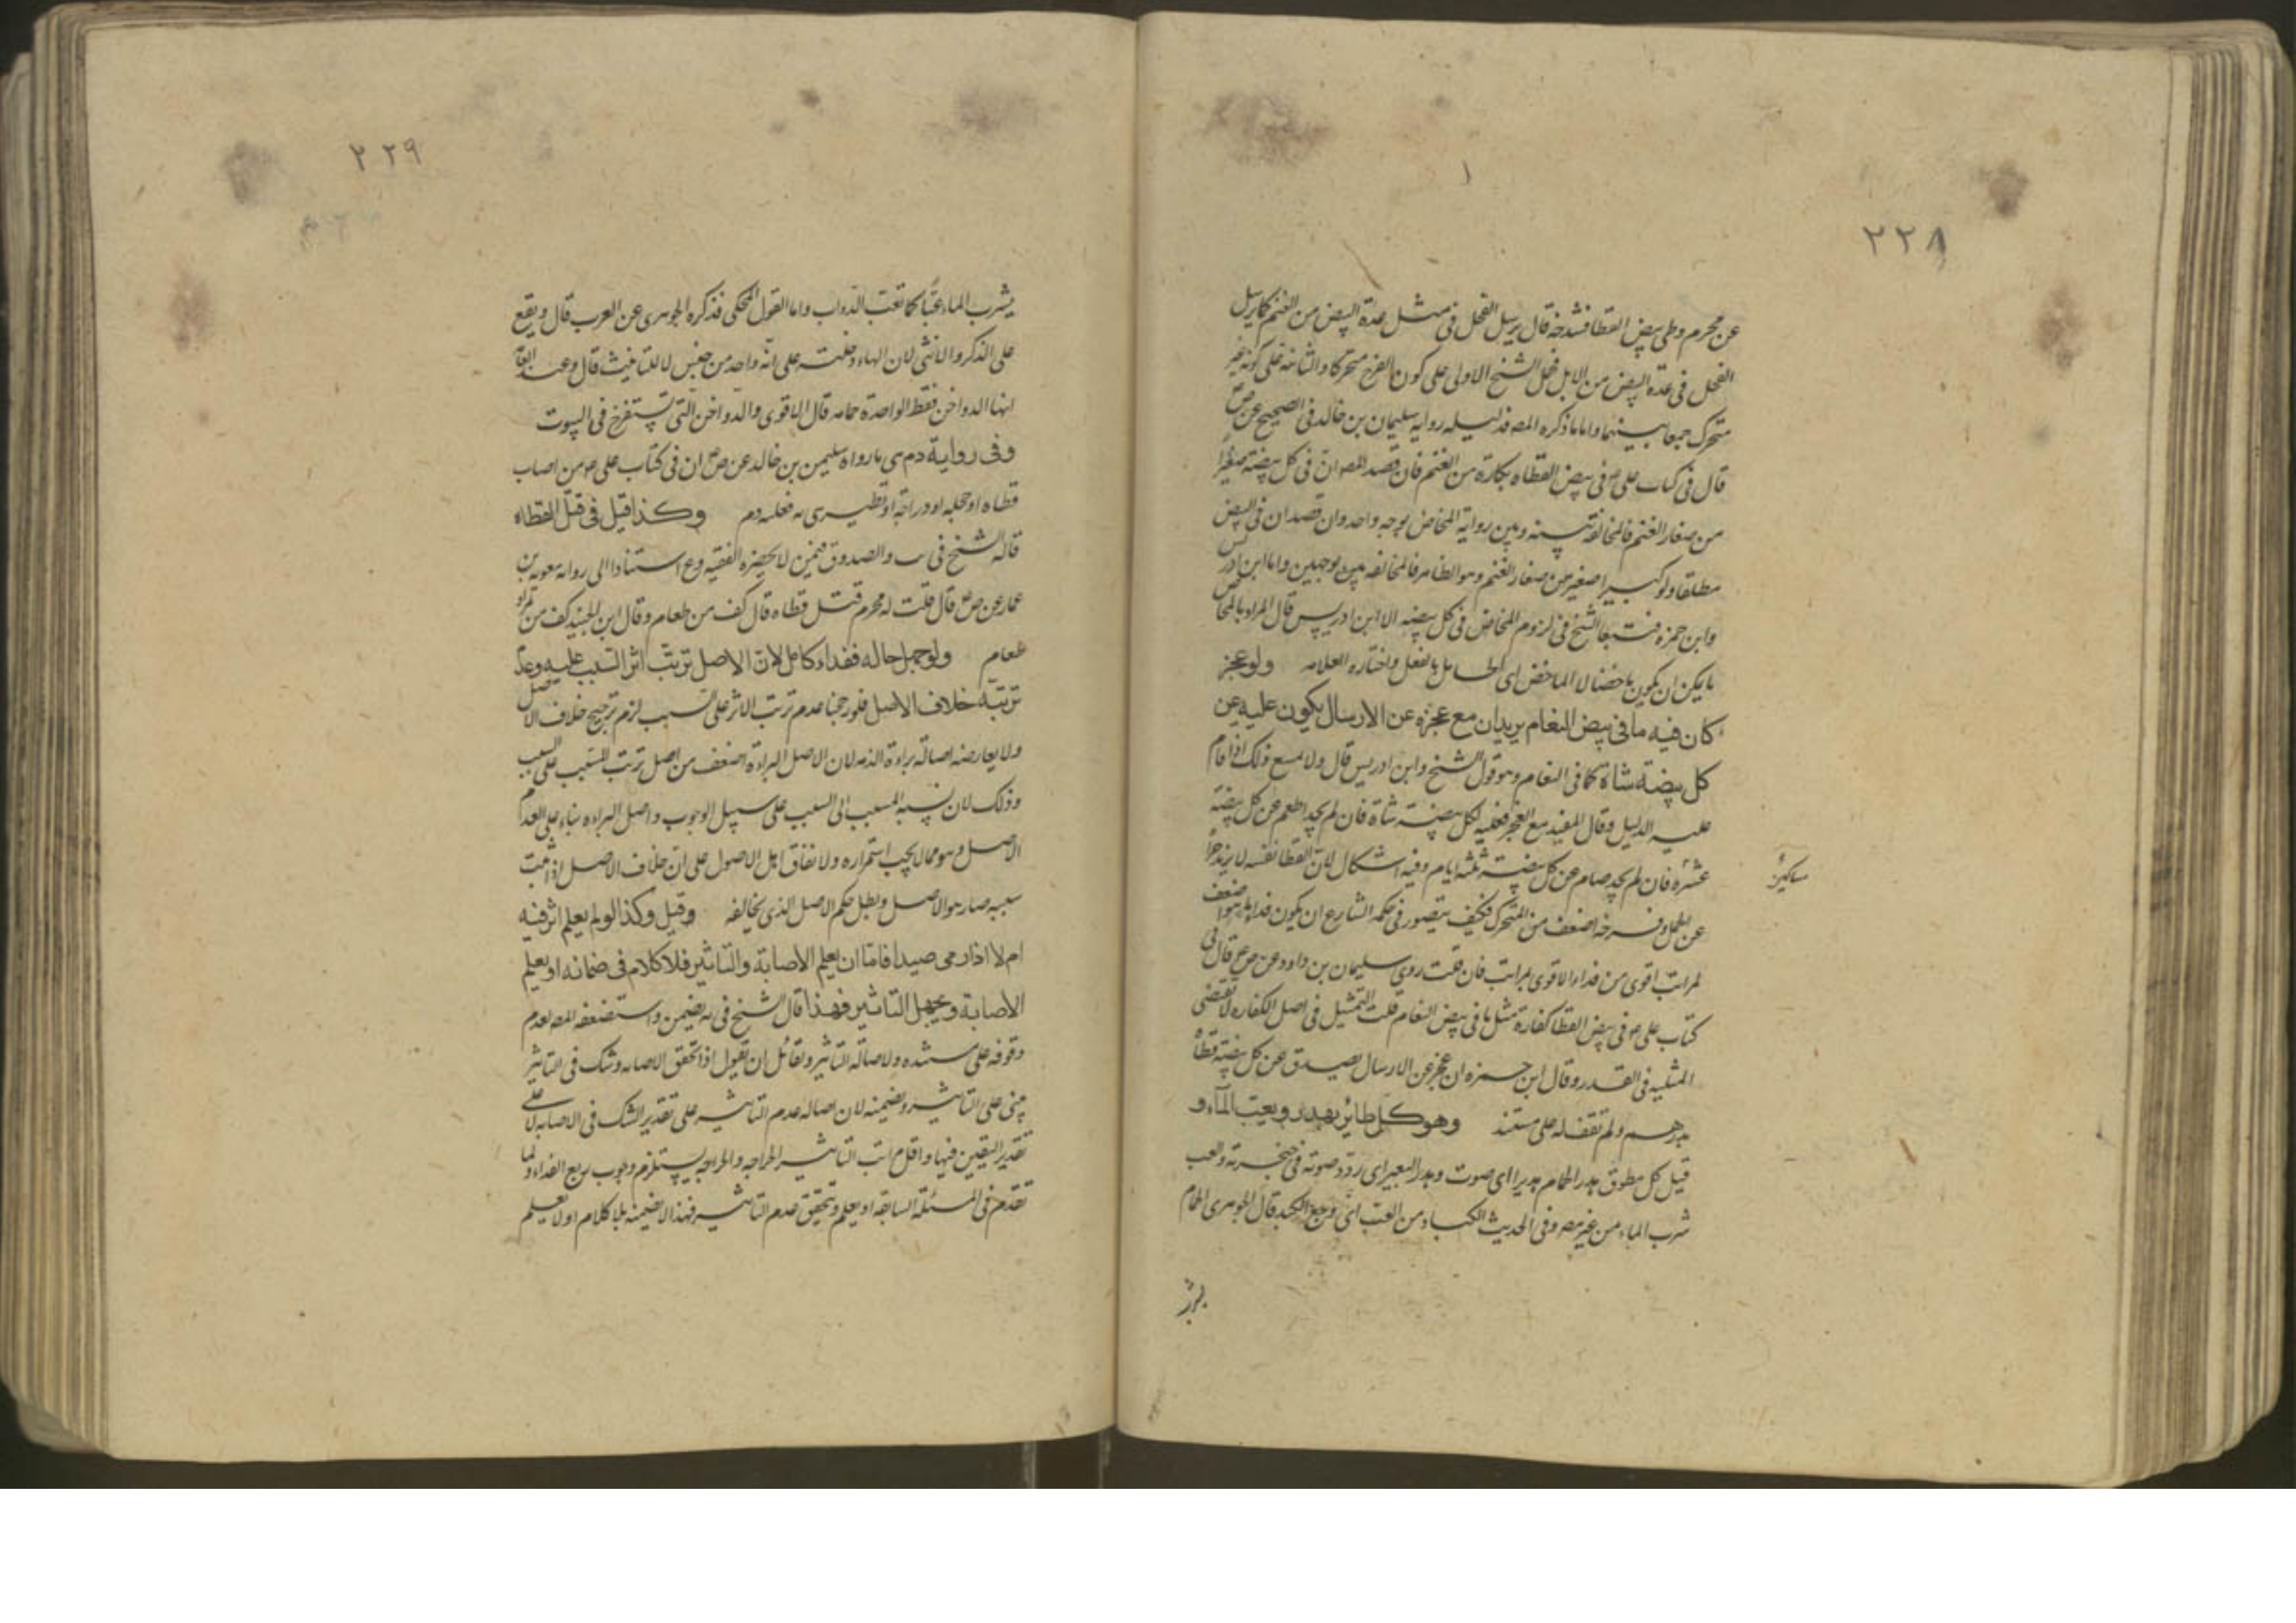 ٢٢٨
عن محرم وطی بیض القطا فشدخه قال یرسل الفحل فی مثل عدة البیض من الغنم کما یرسل
الفحل فی عدة البیض من الابل فحمل الشیخ الاولی علی کون الفرخ متحرکا والثانیة علی کونه غیر
متحرک جمعا بینهما واما ما ذکره المصـ فدلیله روایه سلیمان بن خالد فی الصحیح عن ص
قال فی کتاب علی ع فی بیض القطاه بکارة من الغنم فان قصد المصـ ان فی کل بیضة صغیرا
من صغار الغنم فالمخالفة بینه وبین روایة المخاض بوجه واحد وان قصد ان فی البیض
مطلقا ولو کبیرا صغیر من صغار الغنم وهو الظاهر فالمخالفه بین بوجهین واما ابن ادریس
وابن حمزه فتبعا الشیخ فی لزوم المخاض فی کل بیضه الا ابن ادریس قال المراد بالمخاض
ما یمکن ان یکون ماخضا لا الماخض ای الحامل بالفعل واختاره العلامه ولو عجز
کان فیه ما فی بیض النعام یریدان مع عجزه عن الارسال یکون علیه عن
کل بیضة شاة کما فی النعام وهو قول الشیخ وابن ادریس قال ولا یمنع ذلک اذا قام
علیه الدلیل وقال المفید مع العجز فعلیه لکل بیضة شاة فان لم یجد اطعم عن کل بیضة
عشرة فان لم یجد صام عن کل بیضة ثلثه ایام وفیه اشکال لان القطا نفسه لا یزید جزاؤه
مساکین
عن الحمل وفرخه اضعف من المتحرک فکیف یتصور فی حکمه الشارع ان یکون فداء ما هو اضعف
لمراتب اقوی من فداء الاقوی بمراتب فان قلت روی سلیمان بن داود عن ص ع قال فی
کتاب علی ع فی بیض القطا کفارة مثل ما فی بیض النعام قلت التمثیل فی اصل الکفاره لا یقتضی
المثلیه فی القدر وقال ابن حمزه ان عجز عن الارسال تصدق عن کل بیضة قطاة
بدرهم ولم نقف له علی مستند وهو کل طائر یهدر ویعب الماء و
قیل کل مطوق هدر الحمام هدیرا ای صوت وهدر البعیر ای ردد صوته فی حنجرته والعب
شرب الماء من غیر مص وفی الحدیث الکباد من العب ای وجع الکبد قال الجوهری الحمام
یشرب
٢٢٩
یشرب الماء عبا کما تعب الدواب واما القول المحکی فذکره الجوهری عن العرب قال ویقع
علی الذکر والانثی لان الهاء دخلت علی انه واحد من جنس لا للتانیث قال وعند العامة
انها الدواجن فقط الواحدة حمامه قال الاموی والدواجن التی تستفرخ فی البیوت
وفی روایة دم هی ما رواه سلیمن بن خالد عن ص ان فی کتاب علی ع من اصاب
قطاه او حجله او دراجة او نظیرهن فعلیه دم وکذا قیل فی قتل القطاه
قاله الشیخ فی والصدوق فیمن لا یحضره الفقیه وع استنادا الی روایه معویه بن
عمار عن ص قال قلت له محرم قتل قطاه قال کف من طعام وقال ابن الجنید کف من تمر او
طعام ولو جهل حاله ففداء کامل لان الاصل ترتب اثر السبب علیه وعدم
ترتبه خلاف الاصل فلو رجحنا عدم ترتب الاثر علی السبب لزم ترجیح خلاف الاصل
ولا یعارضه اصالة براءة الذمه لان الاصل البراءة اضعف من اصل ترتب المسبب علی السبب
وذلک لان نسبة المسبب الی السبب علی سبیل الوجوب واصل البراءه بناء علی العدم
الاصل وهو مما لا یجب استمراره ولاتفاق اهل الاصول علی ان خلاف الاصل اذا ثبت
سببه صار هو الاصل وبطل حکم الاصل الذی یخالفه وقیل وکذا لو لم یعلم اثر فیه
ام لا اذا رمی صیدا فاما ان یعلم الاصابة والتاثیر فلا کلام فی ضمانه او یعلم
الاصابة ویجهل التاثیر فهذا قال الشیخ فی یه یضمن واستضعفه المصـ لعدم
وقوفه علی مستنده ولاصالة التاثیر ولقائل ان یقول اذا تحقق الاصابه وشک فی التاثیر
بنی علی التاثیر ویضمنه لان اصاله عدم التاثیر علی تقدیر الشک فی الاصابه لا علی
تقدیر الیقین فیها واقل مراتب التاثیر الجراحه والجراحه یستلزم وجوب ربع الفداء ولما
تقدم فی المسئلة السابقه او یعلم وتحقق عدم التاثیر فهذا لا یضمنه بلا کلام او لا یعلم